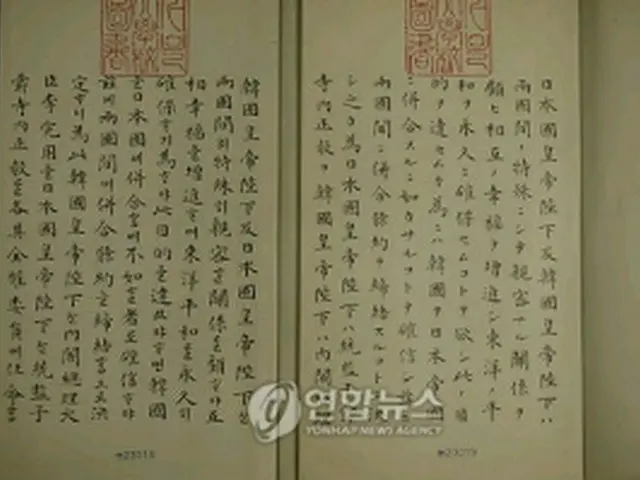 日本國皇帝陛下及韓國皇帝陛下ハ
兩國間ノ特殊ニシテ親密ナル關係ヲ
顧ヒ相互ノ幸福ヲ增進シ東洋ノ平
和ヲ永久ニ確保セムコトヲ欲シ此ノ目
的ヲ達セムカ爲ニハ韓國ヲ日本帝國
ニ併合スルニ如カサルコトヲ確信シ茲ニ
兩國間ニ併合條約ヲ締結スルコトニ
シ之カ爲日本國皇帝陛下ハ統監子
寺內正毅ヲ韓國皇帝陛下ハ內閣
韓國皇帝陛下及日本國皇帝陛下는
兩國間의特殊히親密한關係를顧하야互
相幸福을增進하며東洋平和를永久히
確保하기爲하야此目的을達코자하면韓國
을日本國에併合함에不如한者로確信하야
玆에兩國間에併合條約을締結하기로決
定하니爲此韓國皇帝陛下는內閣總理大
臣李完用을日本國皇帝陛下는統監子
爵寺內正毅를各其全權委員에任命
연합뉴스
YONHAP NEWS AGENCY